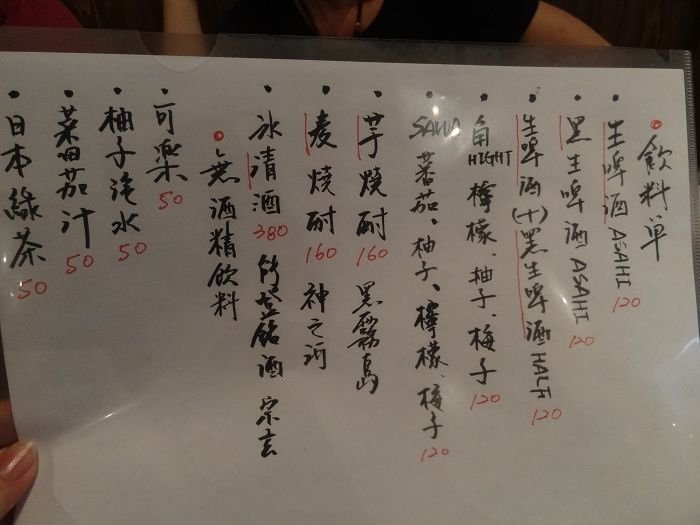 飲料單
生啤酒 ASAHI 120
黑生啤酒 ASAHI 120
生啤酒(+)黑生啤酒 HALF 120
角 HIGHT 檸檬、柚子、梅子 120
SAWA 蕃茄、柚子、檸檬、梅子 120
芋燒酎 160 黑霧島
麦燒酎 160 神之河
冰清酒 380 銘酒 宗玄
無酒精飲料
可樂 50
柚子汽水 50
蕃茄汁 50
日本綠茶 50